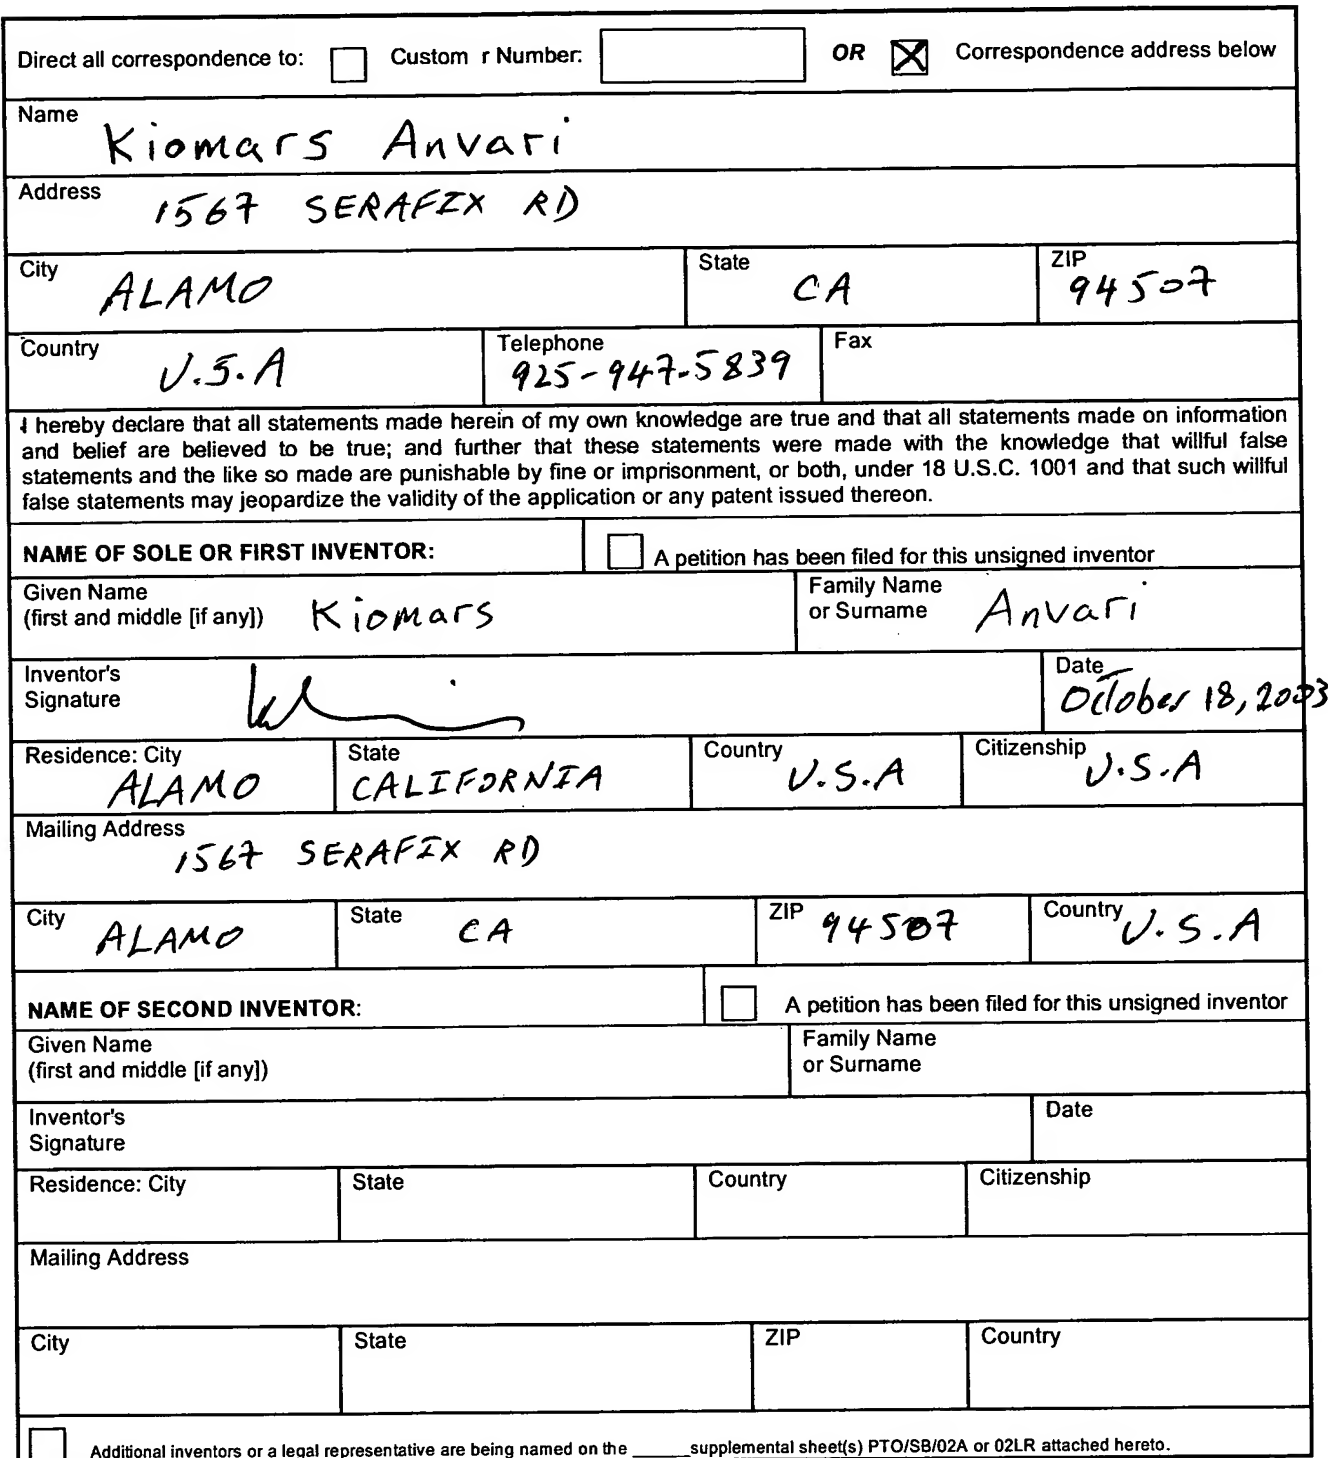 Direct all correspondence to: Custom r Number: OR Correspondence address below
Name
Kiomars Anvari
Address
1567 SERAFIX RD
City State ZIP
ALAMO CA 94507
Country Telephone Fax
U.S.A 925-947-5839
I hereby declare that all statements made herein of my own knowledge are true and that all statements made on information
and belief are believed to be true; and further that these statements were made with the knowledge that willful false
statements and the like so made are punishable by fine or imprisonment, or both, under 18 U.S.C. 1001 and that such willful
false statements may jeopardize the validity of the application or any patent issued thereon.
NAME OF SOLE OR FIRST INVENTOR: A petition has been filed for this unsigned inventor
Given Name Family Name
(first and middle [if any]) Kiomars or Surname Anvari
Inventor's Date
Signature October 18, 2003
Residence: City State Country Citizenship
ALAMO CALIFORNIA U.S.A U.S.A
Mailing Address
1567 SERAFIX RD
City State ZIP Country
ALAMO CA 94507 U.S.A
NAME OF SECOND INVENTOR: A petition has been filed for this unsigned inventor
Given Name Family Name
(first and middle [if any]) or Surname
Inventor's Date
Signature
Residence: City State Country Citizenship
Mailing Address
City State ZIP Country
Additional inventors or a legal representative are being named on the _____supplemental sheet(s) PTO/SB/02A or 02LR attached hereto.